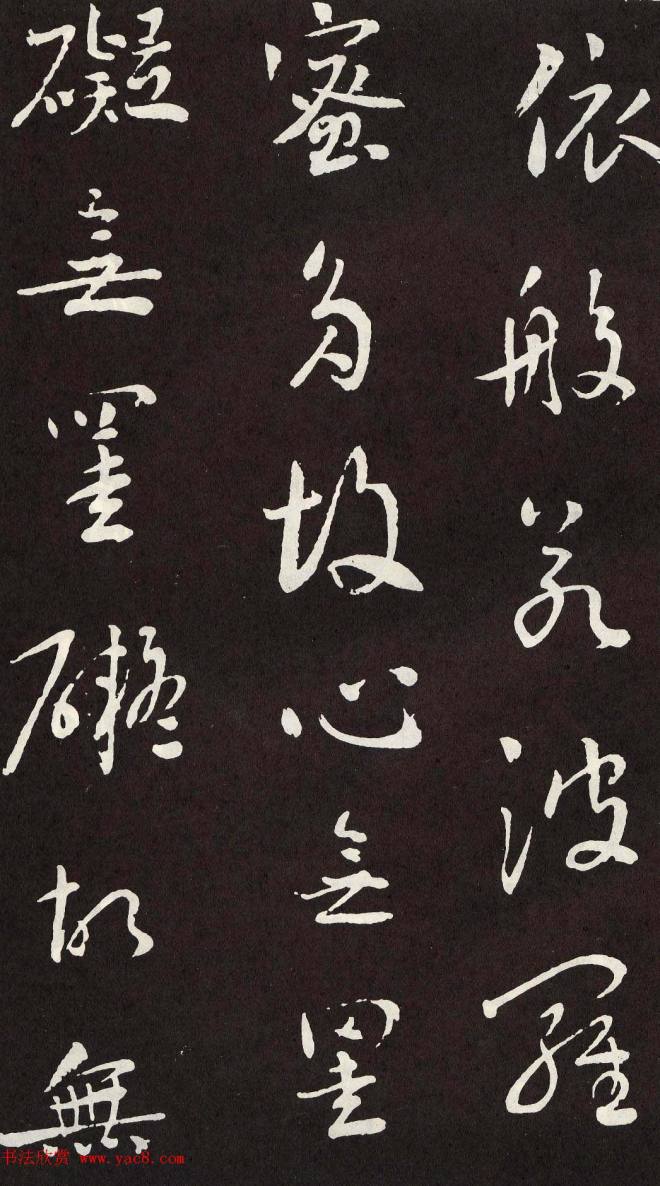 依般若波羅
蜜多故心無罣
礙無罣礙故無
书法欣赏 www.yac8.com